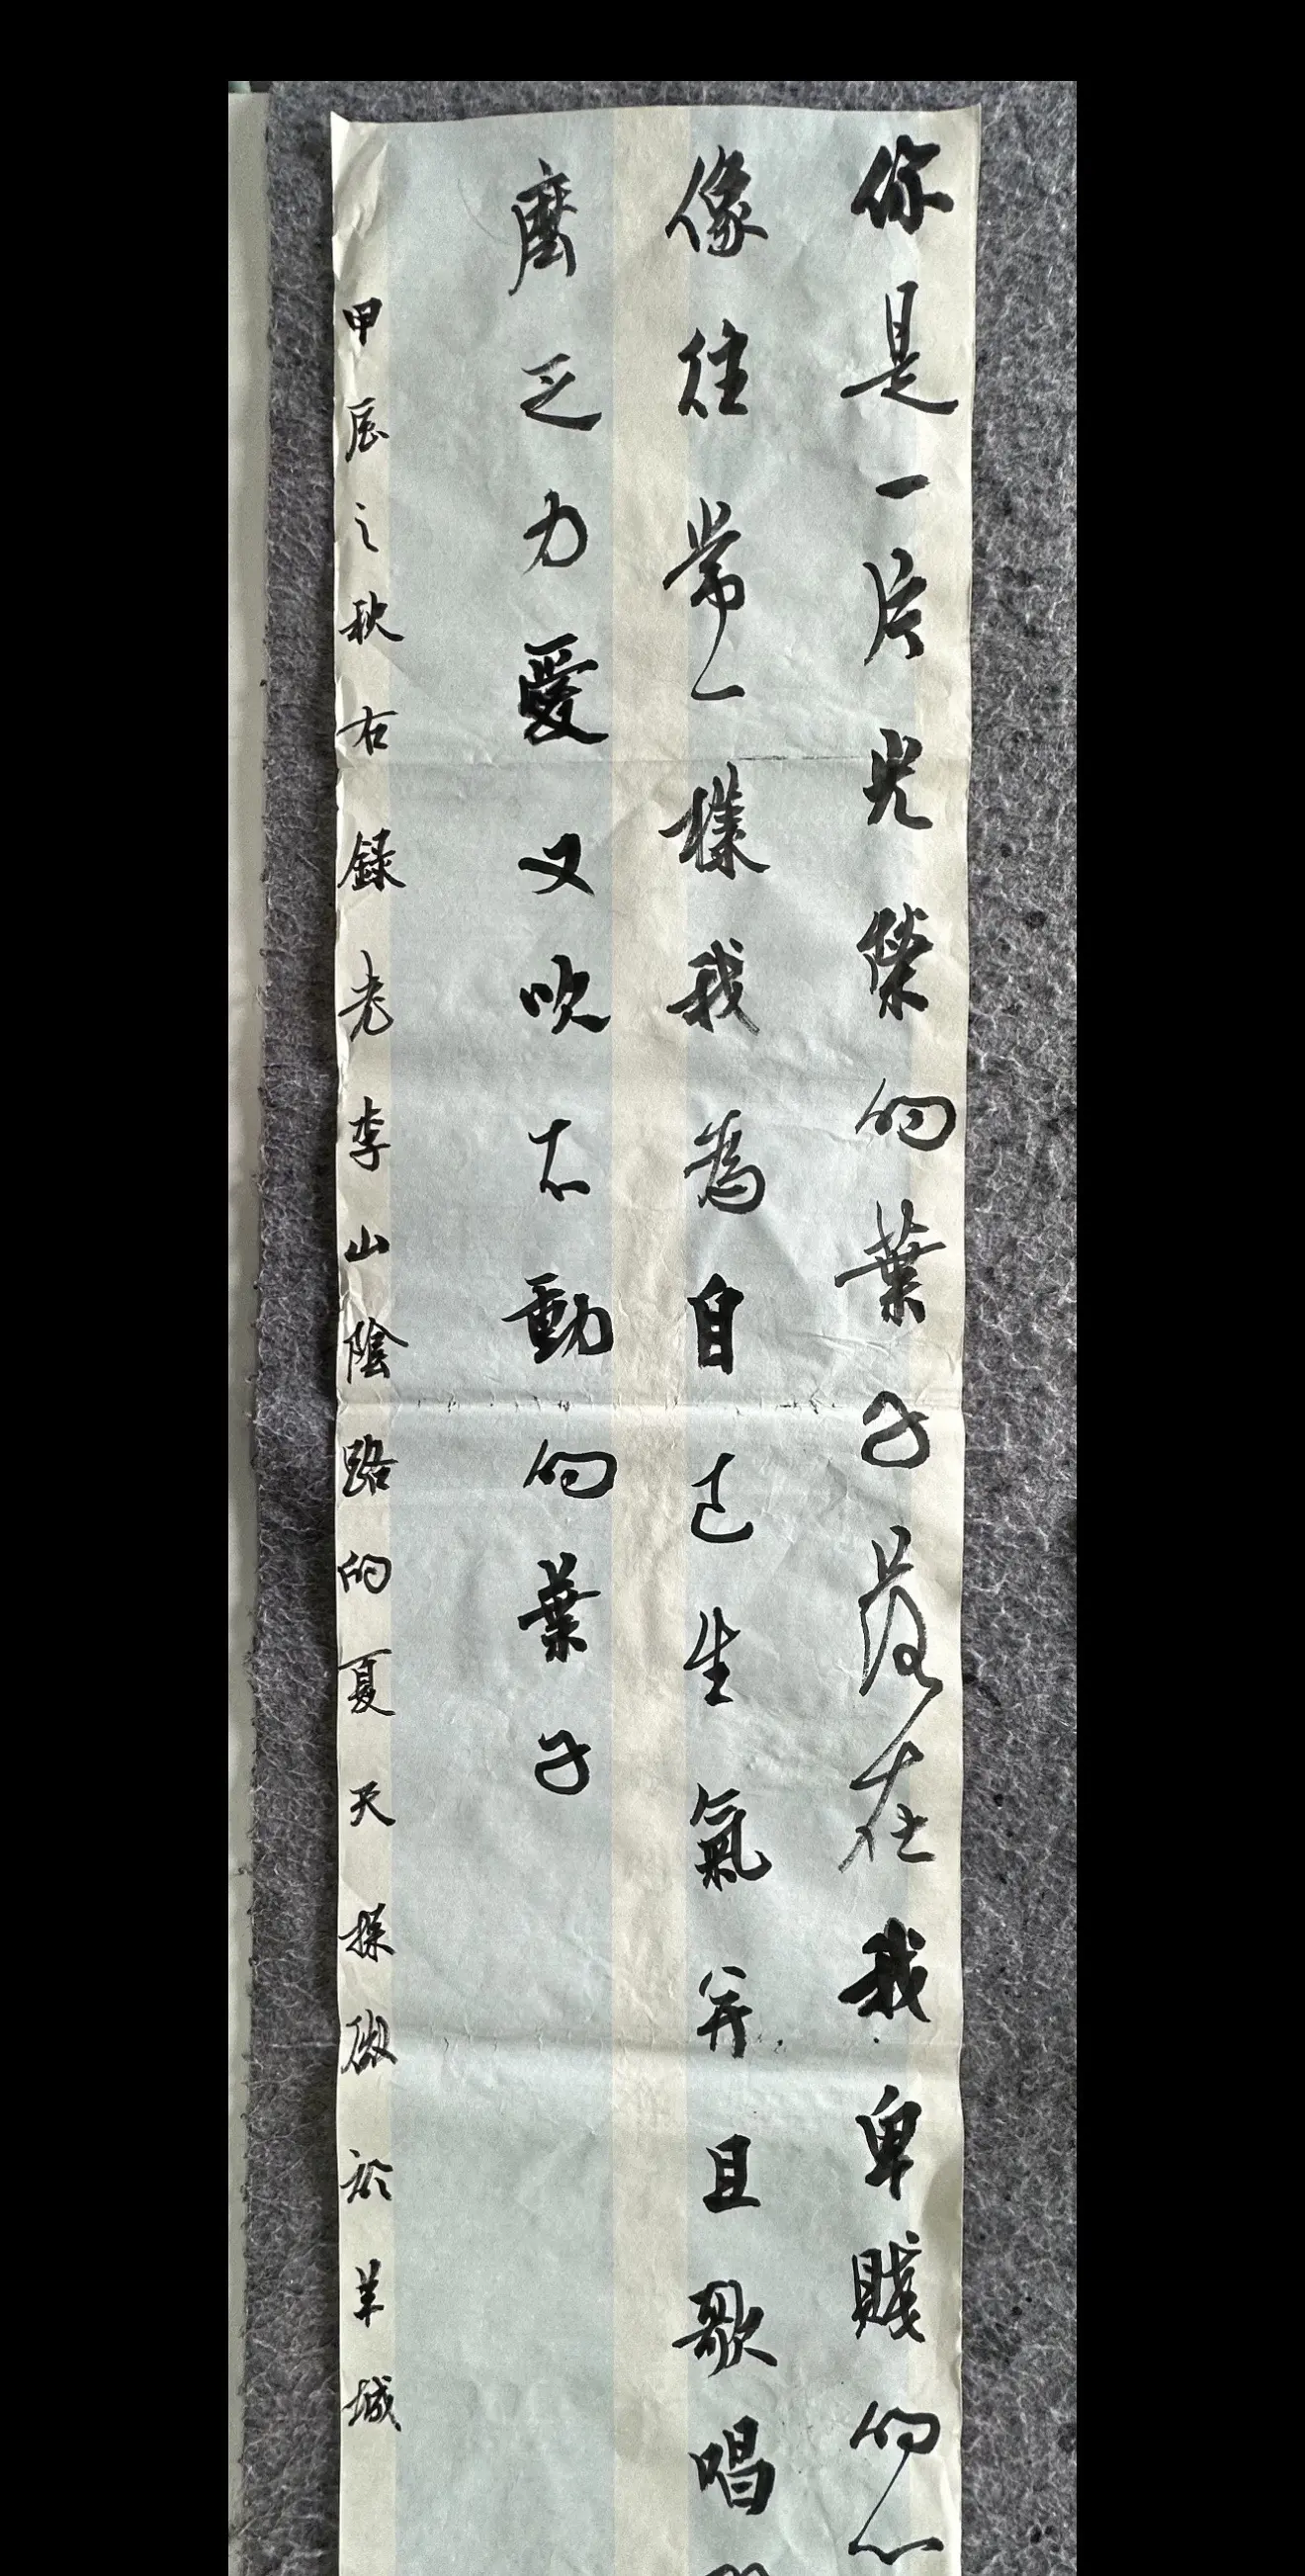 你是一片光榮的葉子落在我卑賤的心
像往常一樣我為自己生氣并且歌唱
麼乏力愛又吹不動的葉子
甲辰之秋右錄老李山陰路的夏天採微於羊城